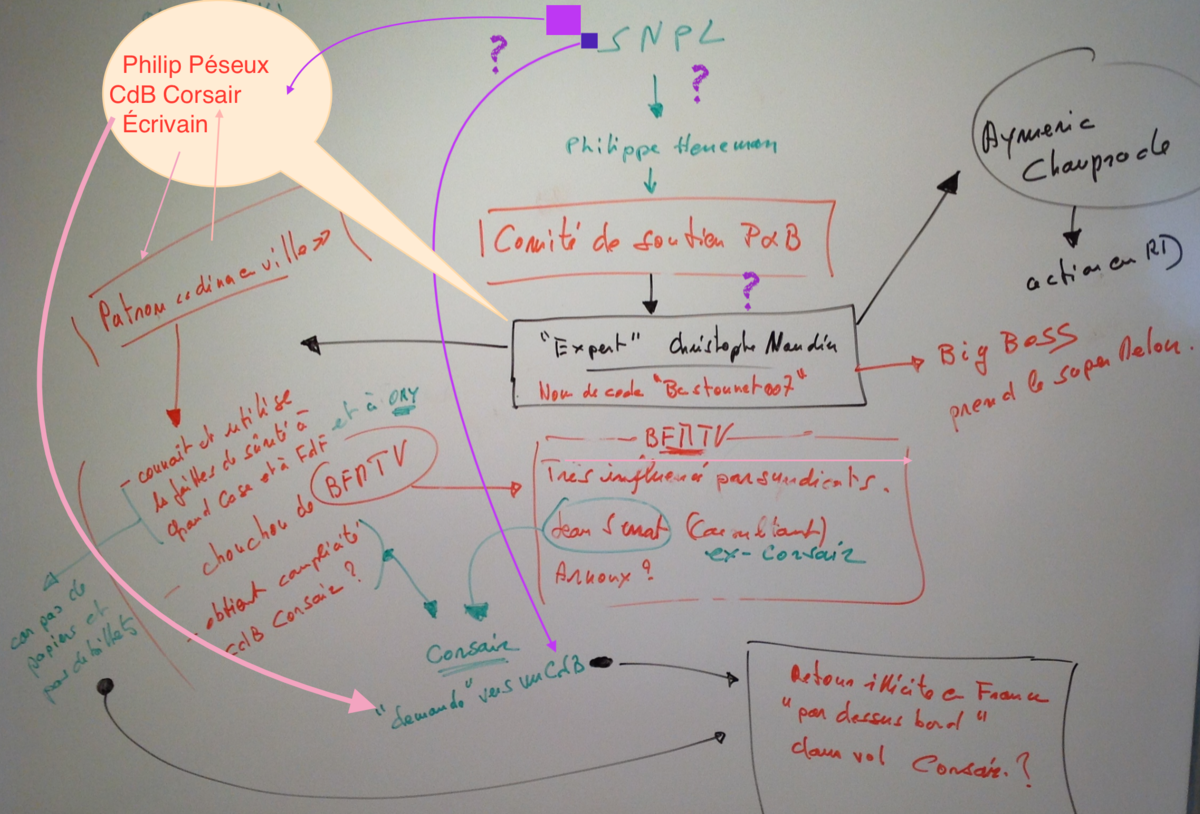 Philip Péseux
CdB Corsair
Écrivain
?
SNPL
?
Philippe Heneman
Comité de soutien P&B
?
"Expert" Christophe Naudin
Nom de code "Bestounet007"
Aymeric
Chauprade
action en RD
Big Boss
prend le super Delou.
Patron cuisina en ville»
- connait et utilise
les failles de sûreté à
Grand Casa et à FdF et à ORY
- chouchou de BFMTV
- obtient complicité
CdB Corsair ?
BFMTV
Très influencé par syndicats.
Jean Serrat (Consultant)
ex-Corsair
Arnoux ?
car pas de
papiers et
pas de billets
Corsair
"demande" vers un CdB
Retour illicite en France
"par dessus bord"
dans vol Corsair. ?